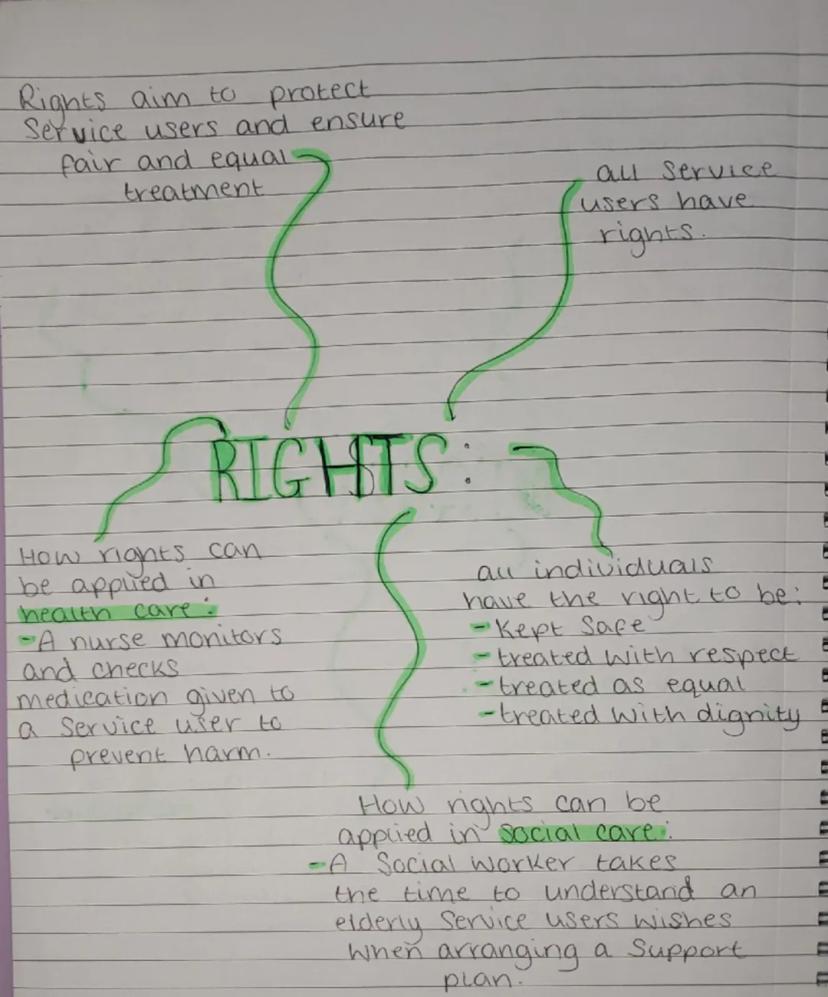 Rights aim to protect
Service users and ensure
fair and equal
treatment
all service
users have
rights.
RIGHTS:
How rights can
be applied in
health care:
-A nurse monitors
and checks
medication given to
a Service user to
prevent harm.
all individuals
have the right to be:
-Kept Safe
-treated with respect
-treated as equal
-treated with dignity
How rights can be
applied in social care:
-A Social worker takes
the time to understand an
elderly Service users wishes
when arranging a Support
plan.